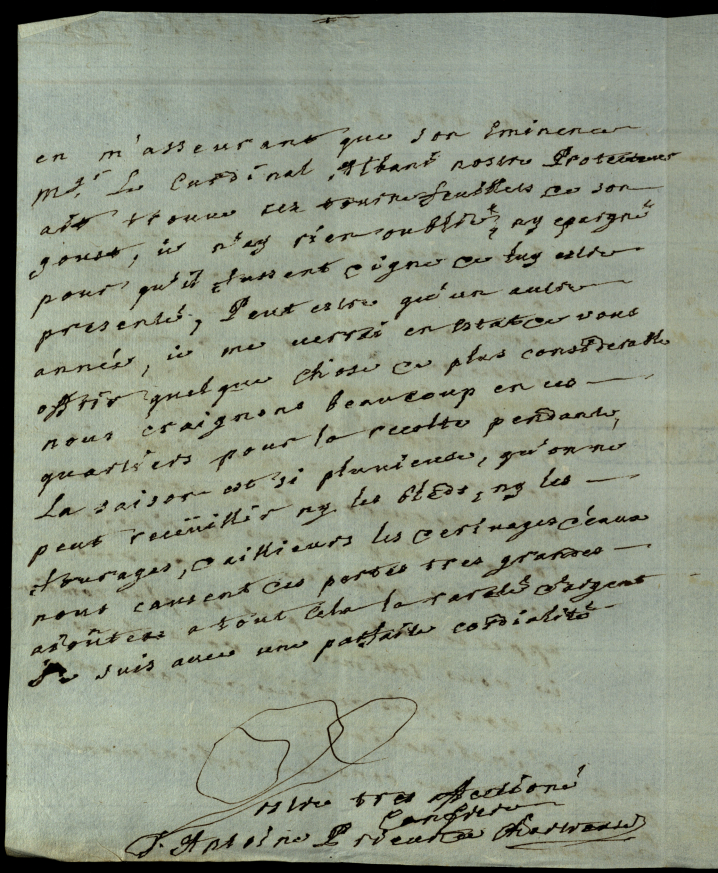 en m'asseurant que son Eminence
Mgr Le Cardinal Albani nostre Protecteur
ait trouvé ses tournefeuillets de son
goust, ie n'ay rien oublié, ny epargné
pour qu'il fussent digne de luy estre
presenté, Peut estre qu'un autre
année, ie me verrai en estat de vous
offrir quelque chose de plus considerable
nous craignons beaucoup en ces
quartiers pour la recolte pendante,
La saison est si pluvieuse, qu'on ne
peut recëuillir ny les bleds, ny les
fourages, d'aillieurs les d'eaux
nous causent des pertes tres grandes
aioûtez a tout cela la rareté d'argent
Je suis avec une parfaite cordialité
vostre tres affectioné
Confrere
F. Antoine Prieur de